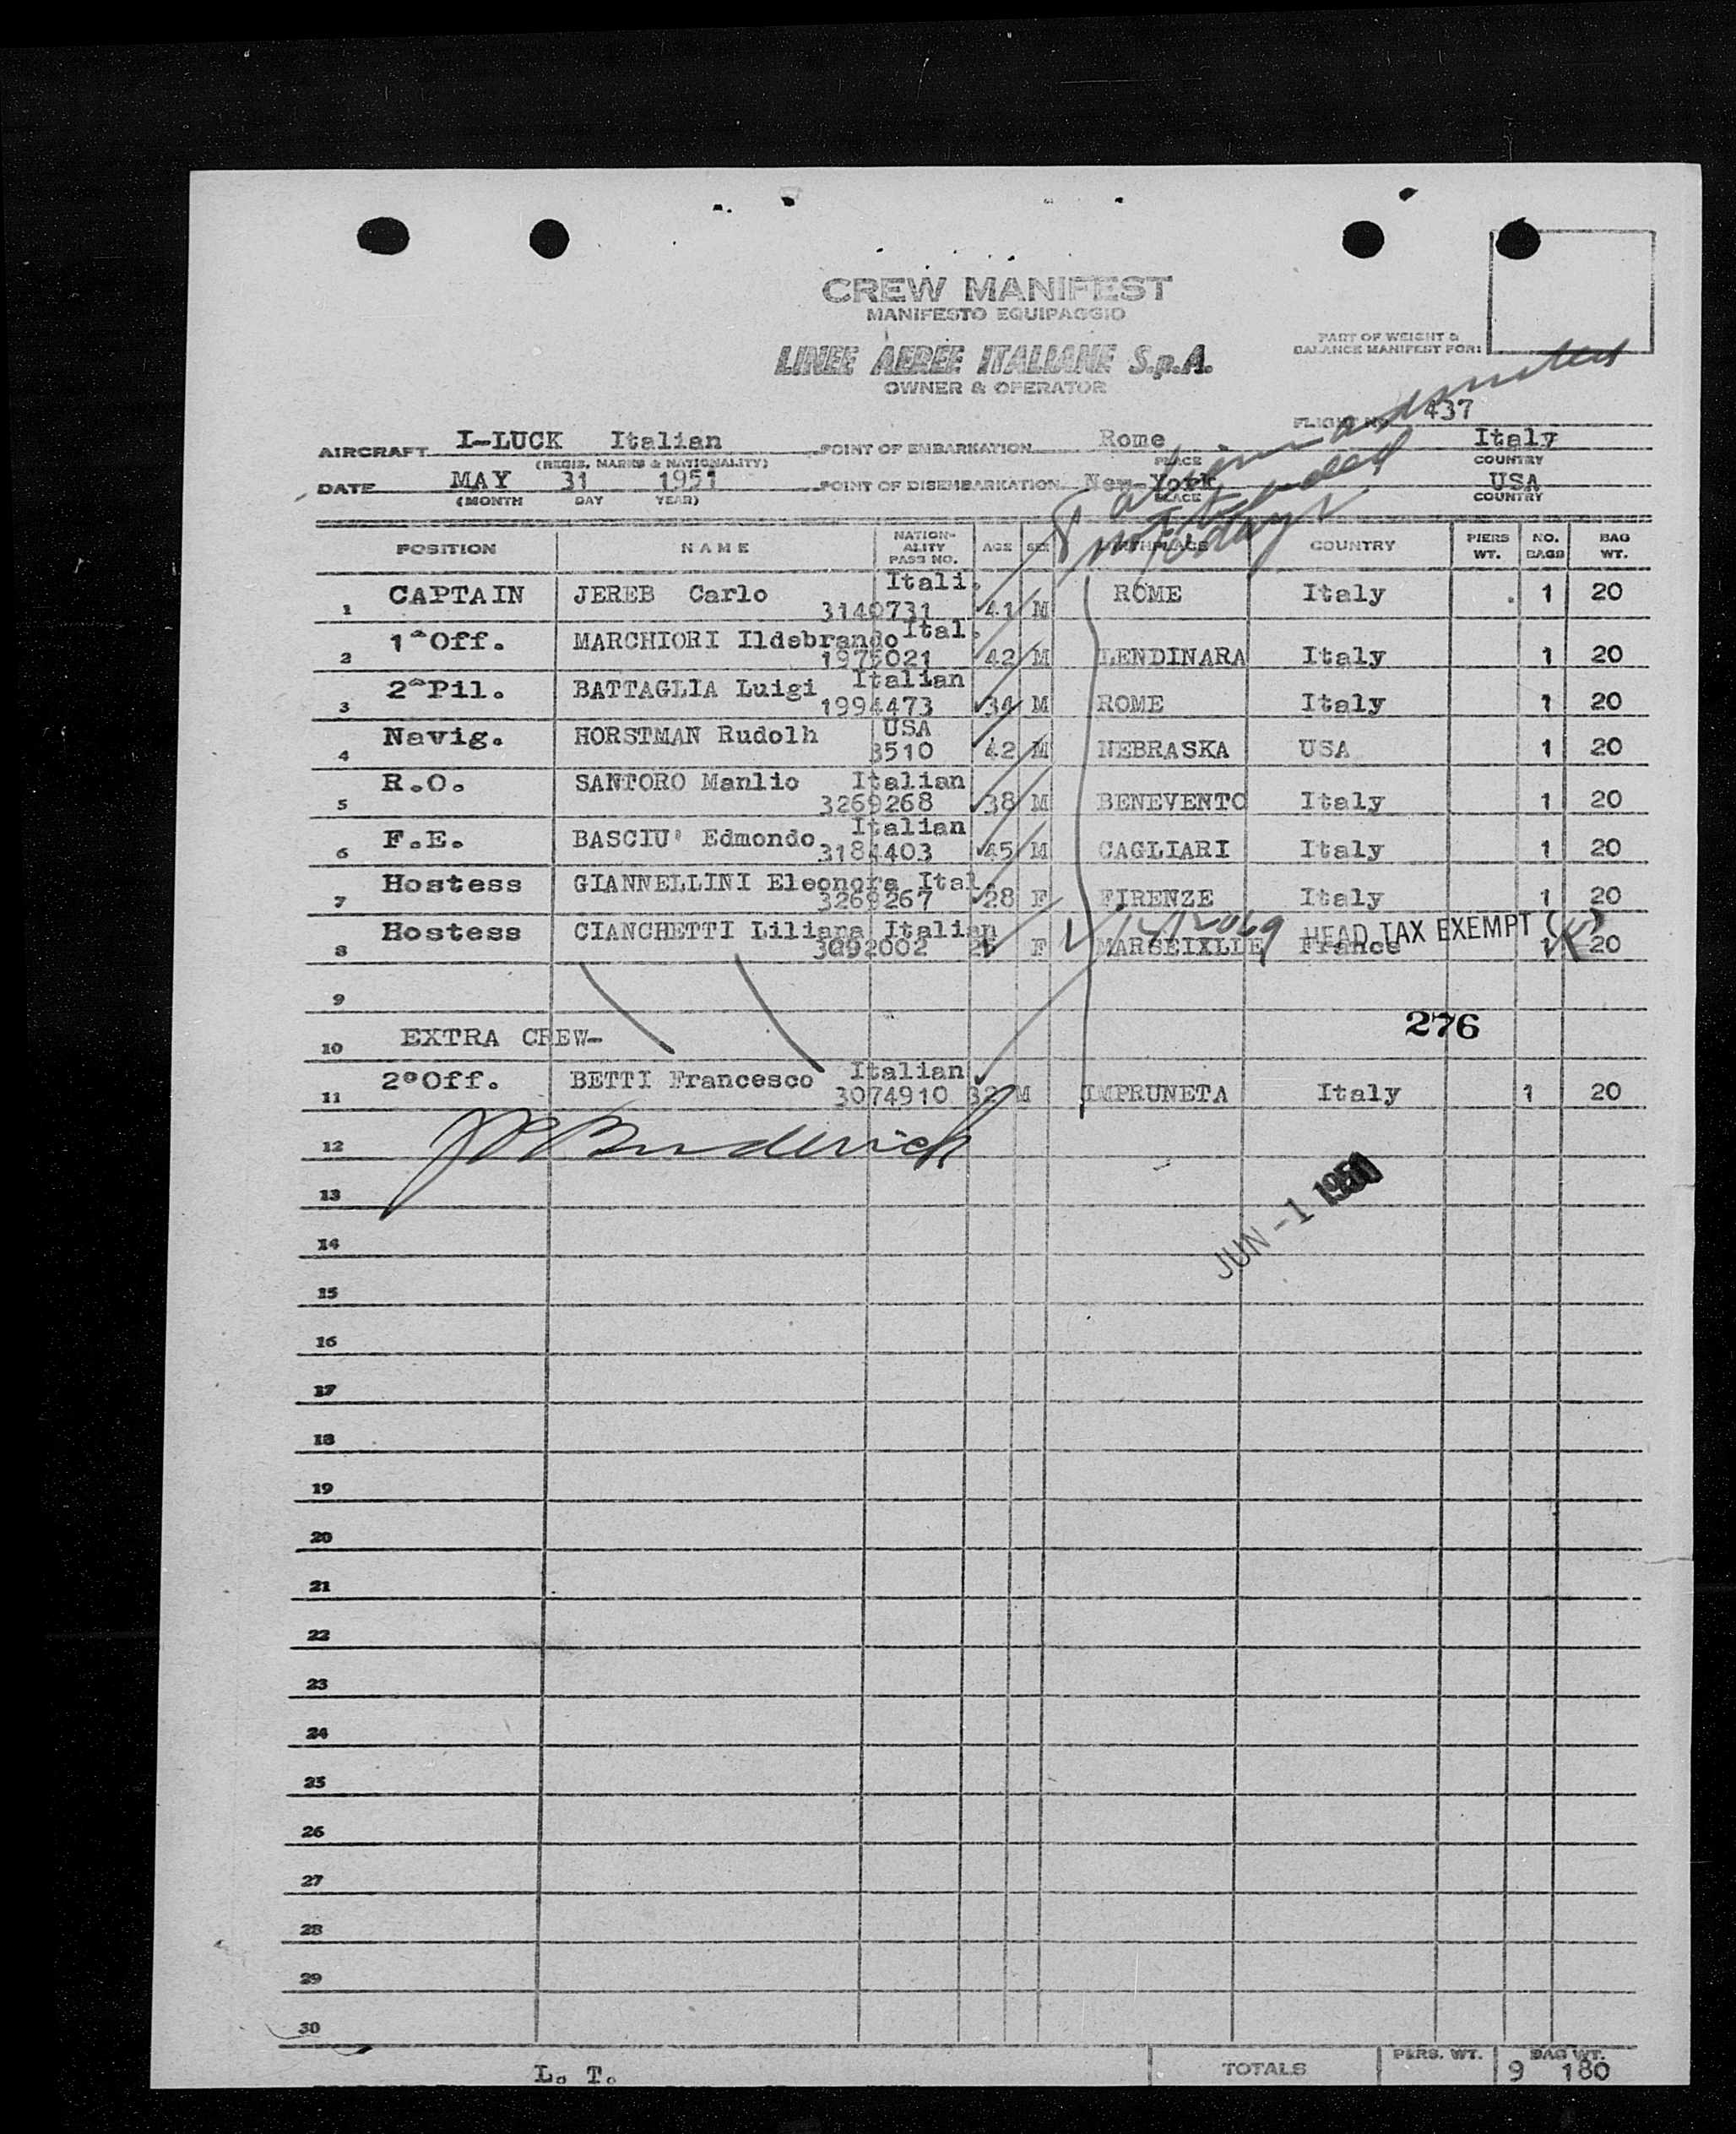 CREW MANIFEST
MANIFESTO EQUIPAGGIO
LINEE AEREE ITALIANE S.p.A.
OWNER & OPERATOR
PART OF WEIGHT & BALANCE MANIFEST FOR:
FLIGHT No. 437
AIRCRAFT I-LUCK Italian POINT OF EMBARKATION Rome Italy
(REGIS. MARKS & NATIONALITY) PLACE COUNTRY
DATE MAY 31 1951 POINT OF DISEMBARKATION New-York USA
(MONTH DAY YEAR) PLACE COUNTRY
8 aliens admitted
not to exceed
days
POSITION NAME NATION-ALITY PASS NO. AGE SEX BIRTHPLACE COUNTRY PIERS WT. NO. BAGS BAG WT.
1 CAPTAIN JEREB Carlo Itali. 3140731 41 M ROME Italy 1 20
2 1^Off. MARCHIORI Ildebrando Ital. 1975021 42 M LENDINARA Italy 1 20
3 2^Pil. BATTAGLIA Luigi Italian 1994473 34 M ROME Italy 1 20
4 Navig. HORSTMAN Rudolh USA 3510 42 M NEBRASKA USA 1 20
5 R.O. SANTORO Manlio Italian 3269268 38 M BENEVENTO Italy 1 20
6 F.E. BASCIU' Edmondo Italian 3184403 45 M CAGLIARI Italy 1 20
7 Hostess GIANNELLINI Eleonora Ital. 3269267 28 F FIRENZE Italy 1 20
8 Hostess CIANCHETTI Liliana Italian 3092002 F MARSEIXLLE France 1 20
HEAD TAX EXEMPT
9
276
10 EXTRA CREW-
11 2°Off. BETTI Francesco Italian 3074910 32 M IMPRUNETA Italy 1 20
12
13
JUN -1 1951
14
15
16
17
18
19
20
21
22
23
24
25
26
27
28
29
30
L. T. TOTALS PERS. WT. BAG WT. 9 180